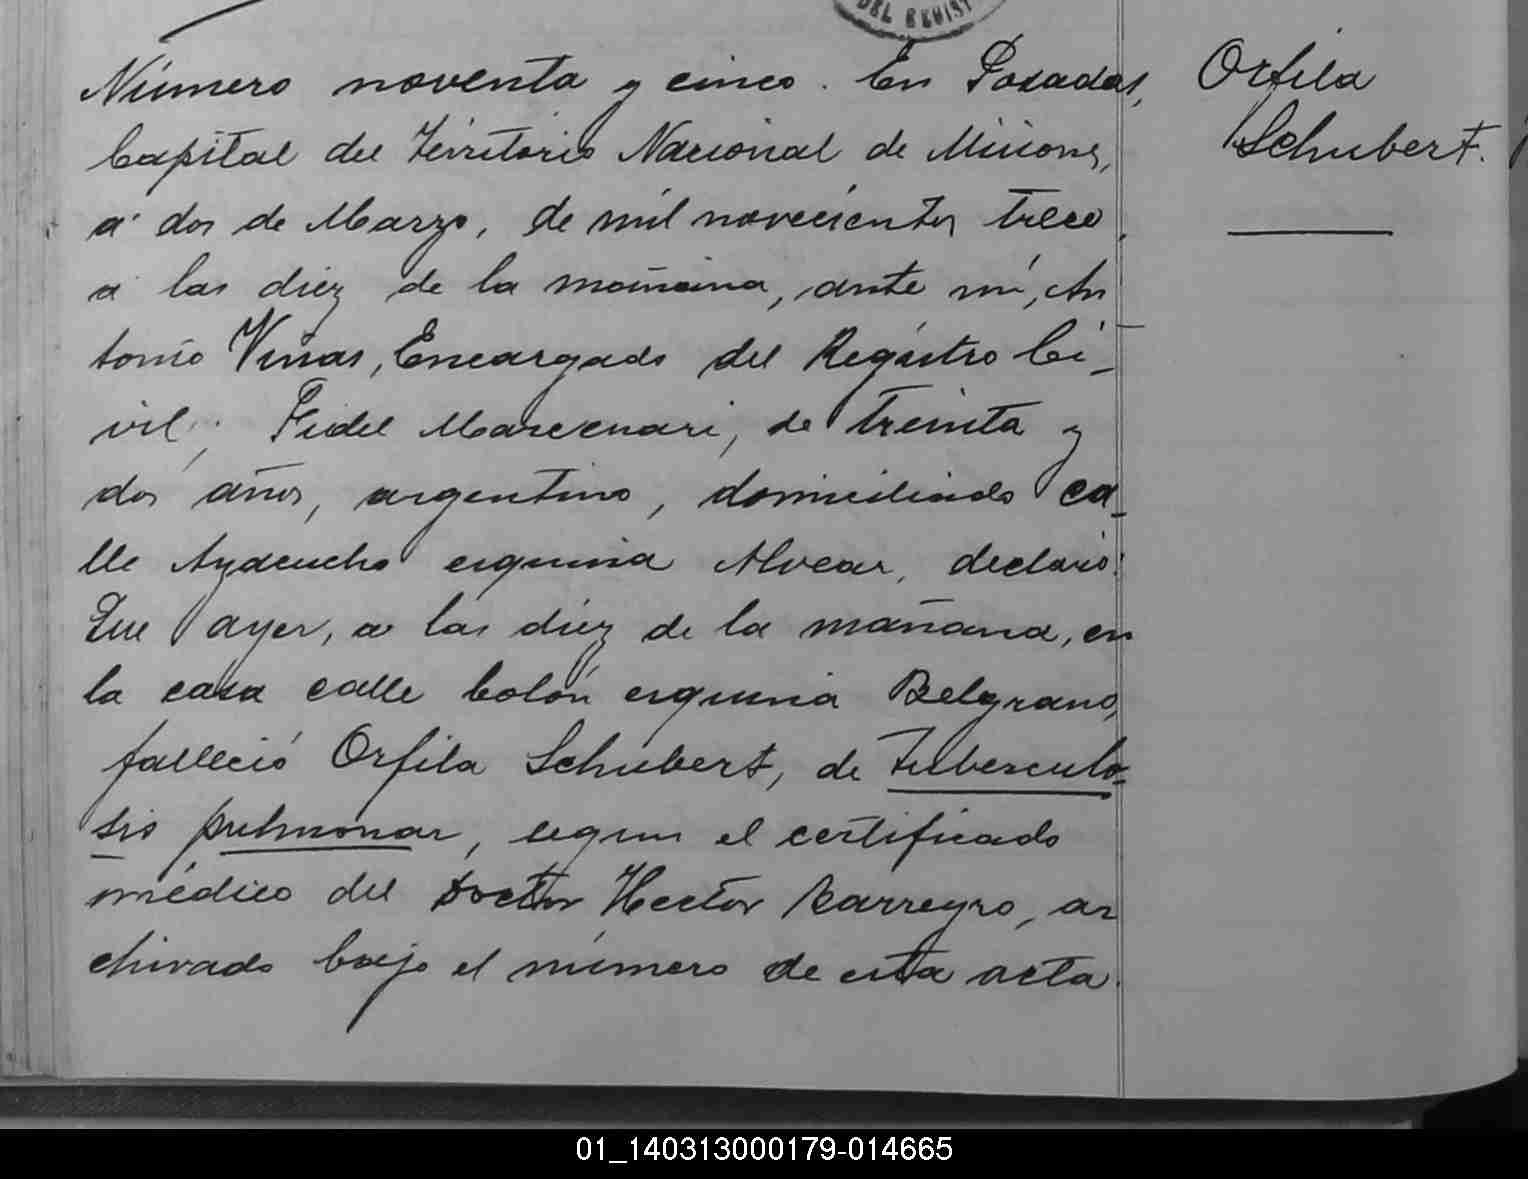 DEL REGIST
Número noventa y cinco. En Posadas,
Capital del Território Nacional de Misiones,
á dos de Marzo, de mil novecientos trece,
a las diez de la mañana, ante mí, An
tonio Viñas, Encargado del Registro Ci-
vil; Fidel, de treinta y
dos años, argentino, domiciliado ca-
lle Ayacucho esquina Alvear, declaró:
Que ayer, a las diez de la mañana, en
la casa calle Colón esquina Belgrano,
falleció Orfila Schubert, de tuberculo-
sis pulmonar, segun el certificado
médico del doctor Hector Barreyro, ar
chivado bajo el número de esta acta.
Orfila
Schubert.
01_140313000179-014665